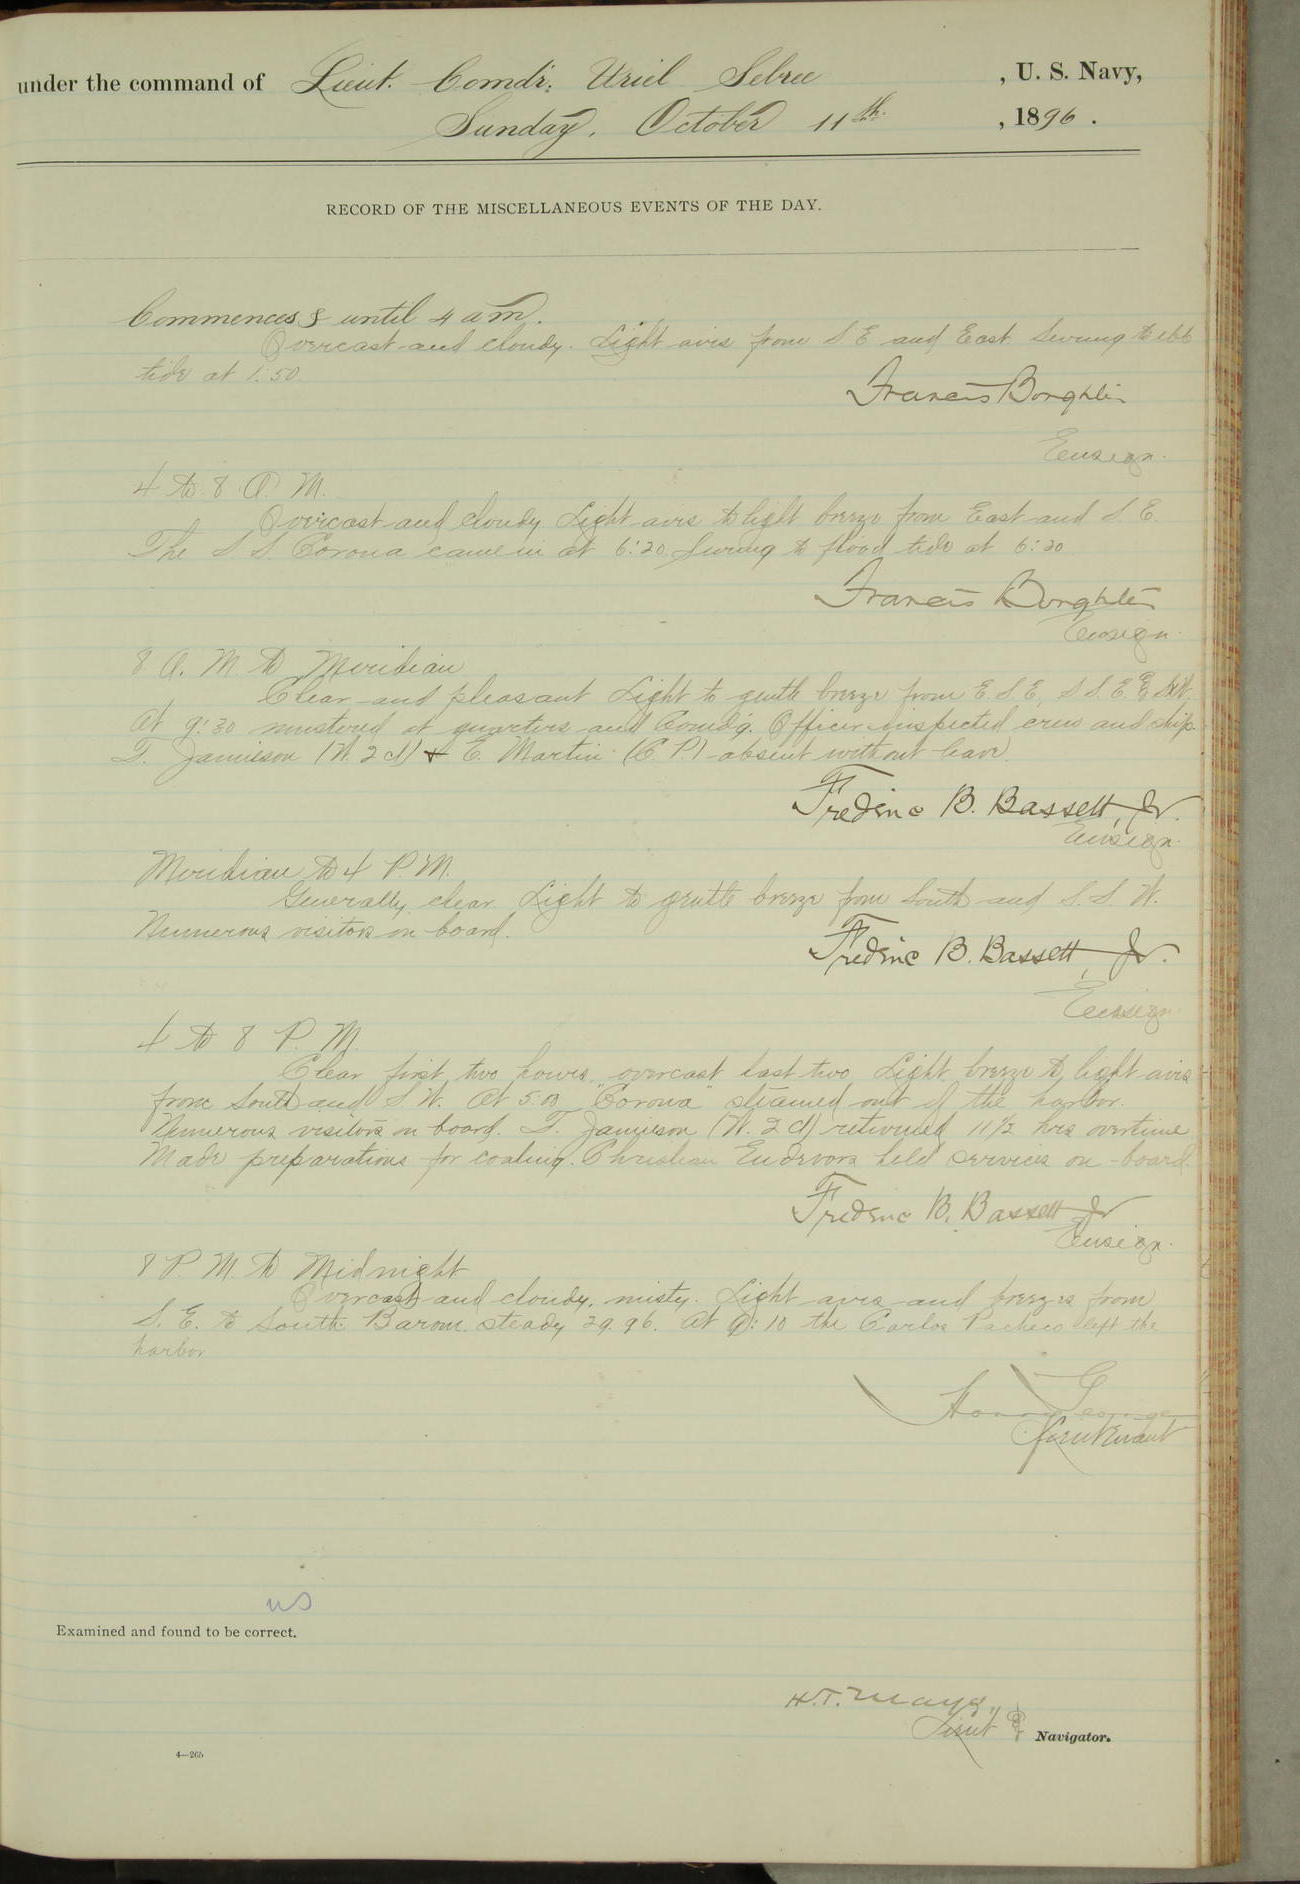 under the command of Lieut. Comdr. Uriel Sebree , U. S. Navy,
Sunday, October 11th , 1896 .
RECORD OF THE MISCELLANEOUS EVENTS OF THE DAY.
Commences & until 4 a m.
Overcast and cloudy. Light airs from S E and East. Swung to ebb
tide at 1:50.
Francis Boughter
Ensign.
4 to 8 A. M.
Overcast and cloudy Light airs to light breeze from East and S. E.
The S S Corona came in at 6:20. Swung to flood tide at 6:20
Francis Boughter
Ensign.
8 A. M to Meridian
Clear and pleasant Light to gentle breeze from E. S. E, S S. E.
At 9:30 mustered at quarters and Comdg. Officer inspected crew and ship.
T. Jamieson (W. 2 cl) & E. Martin (C. P.) absent without leave.
Frederic B. Bassett, Jr.
Ensign.
Meridian to 4 P. M.
Generally clear. Light to gentle breeze from South and S. S. W.
Numerous visitors on board.
Frederic B. Bassett, Jr.
Ensign
4 to 8 P. M.
Clear first two hours, overcast last two Light breeze to light airs
from South and S W. At 5:00 "Corona" steamed out of the harbor.
Numerous visitors on board. T. Jamieson (W. 2 cl) returned 11½ hrs overtime
Made preparations for coaling. Christian Endevors held services on board.
Frederic B. Bassett Jr
Ensign.
8 P. M. to Midnight
Overcast and cloudy, misty. Light airs and breezes from
S. E. to South. Barom. steady 29.96. At 9:10 the Carlos Pacheco left the
harbor
Harry George
Lieutenant
US
Examined and found to be correct.
H. T. Mayo,
Lieut & Navigator.
4—265